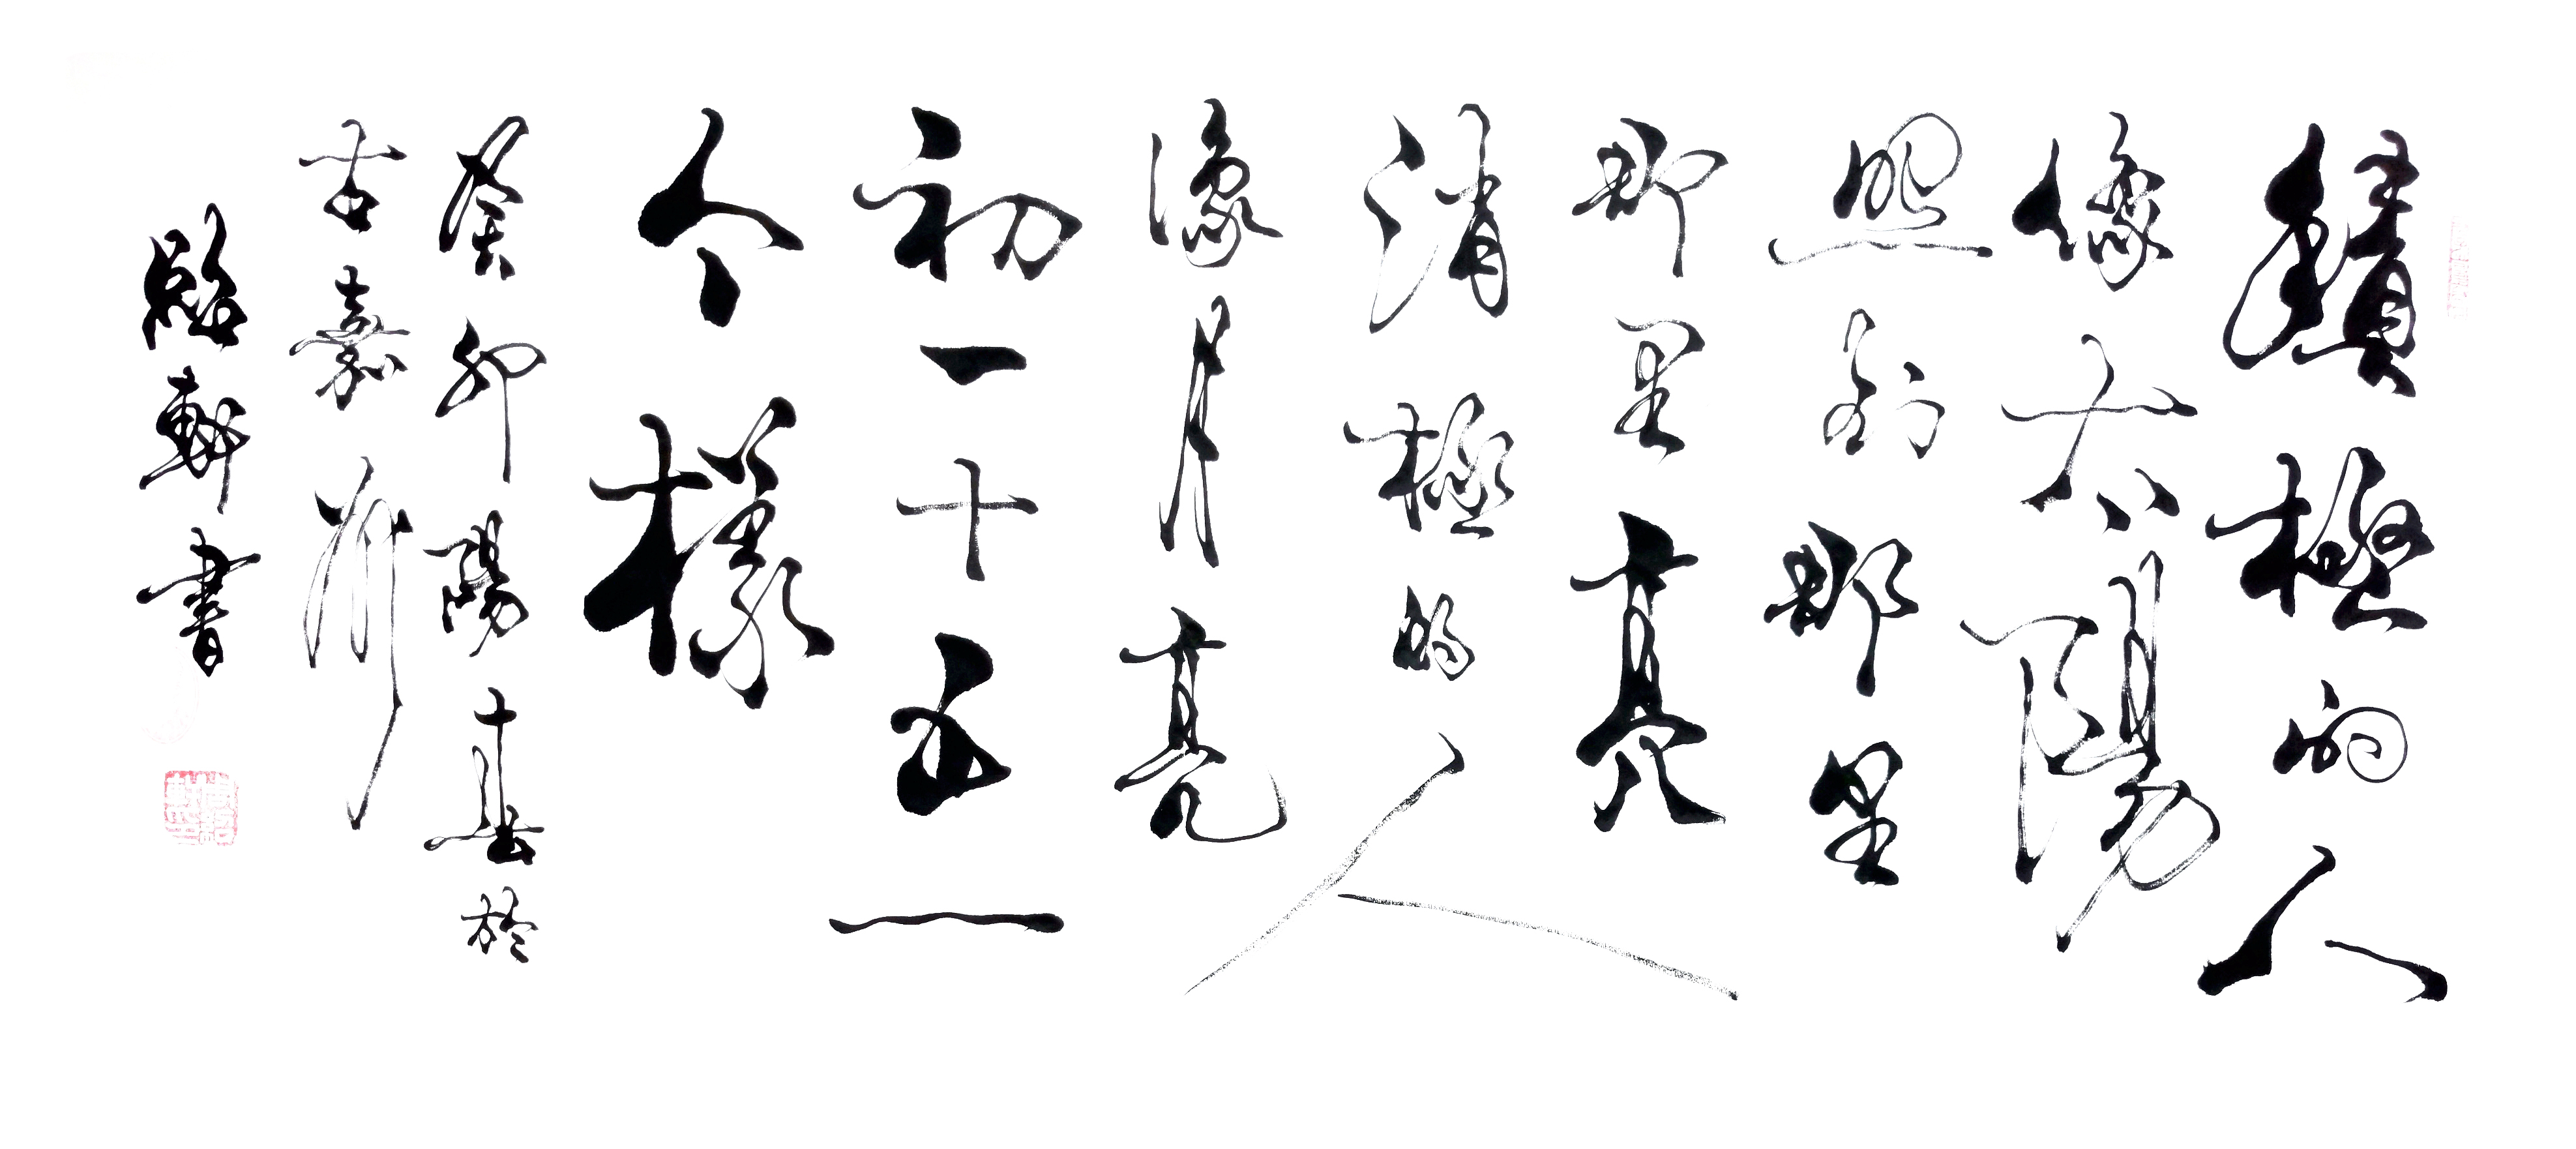 積極的人
像太陽
照到那里
那里亮
消極的人
像月亮
初一十五一
个樣
癸卯陽春於
古嘉州
軒書